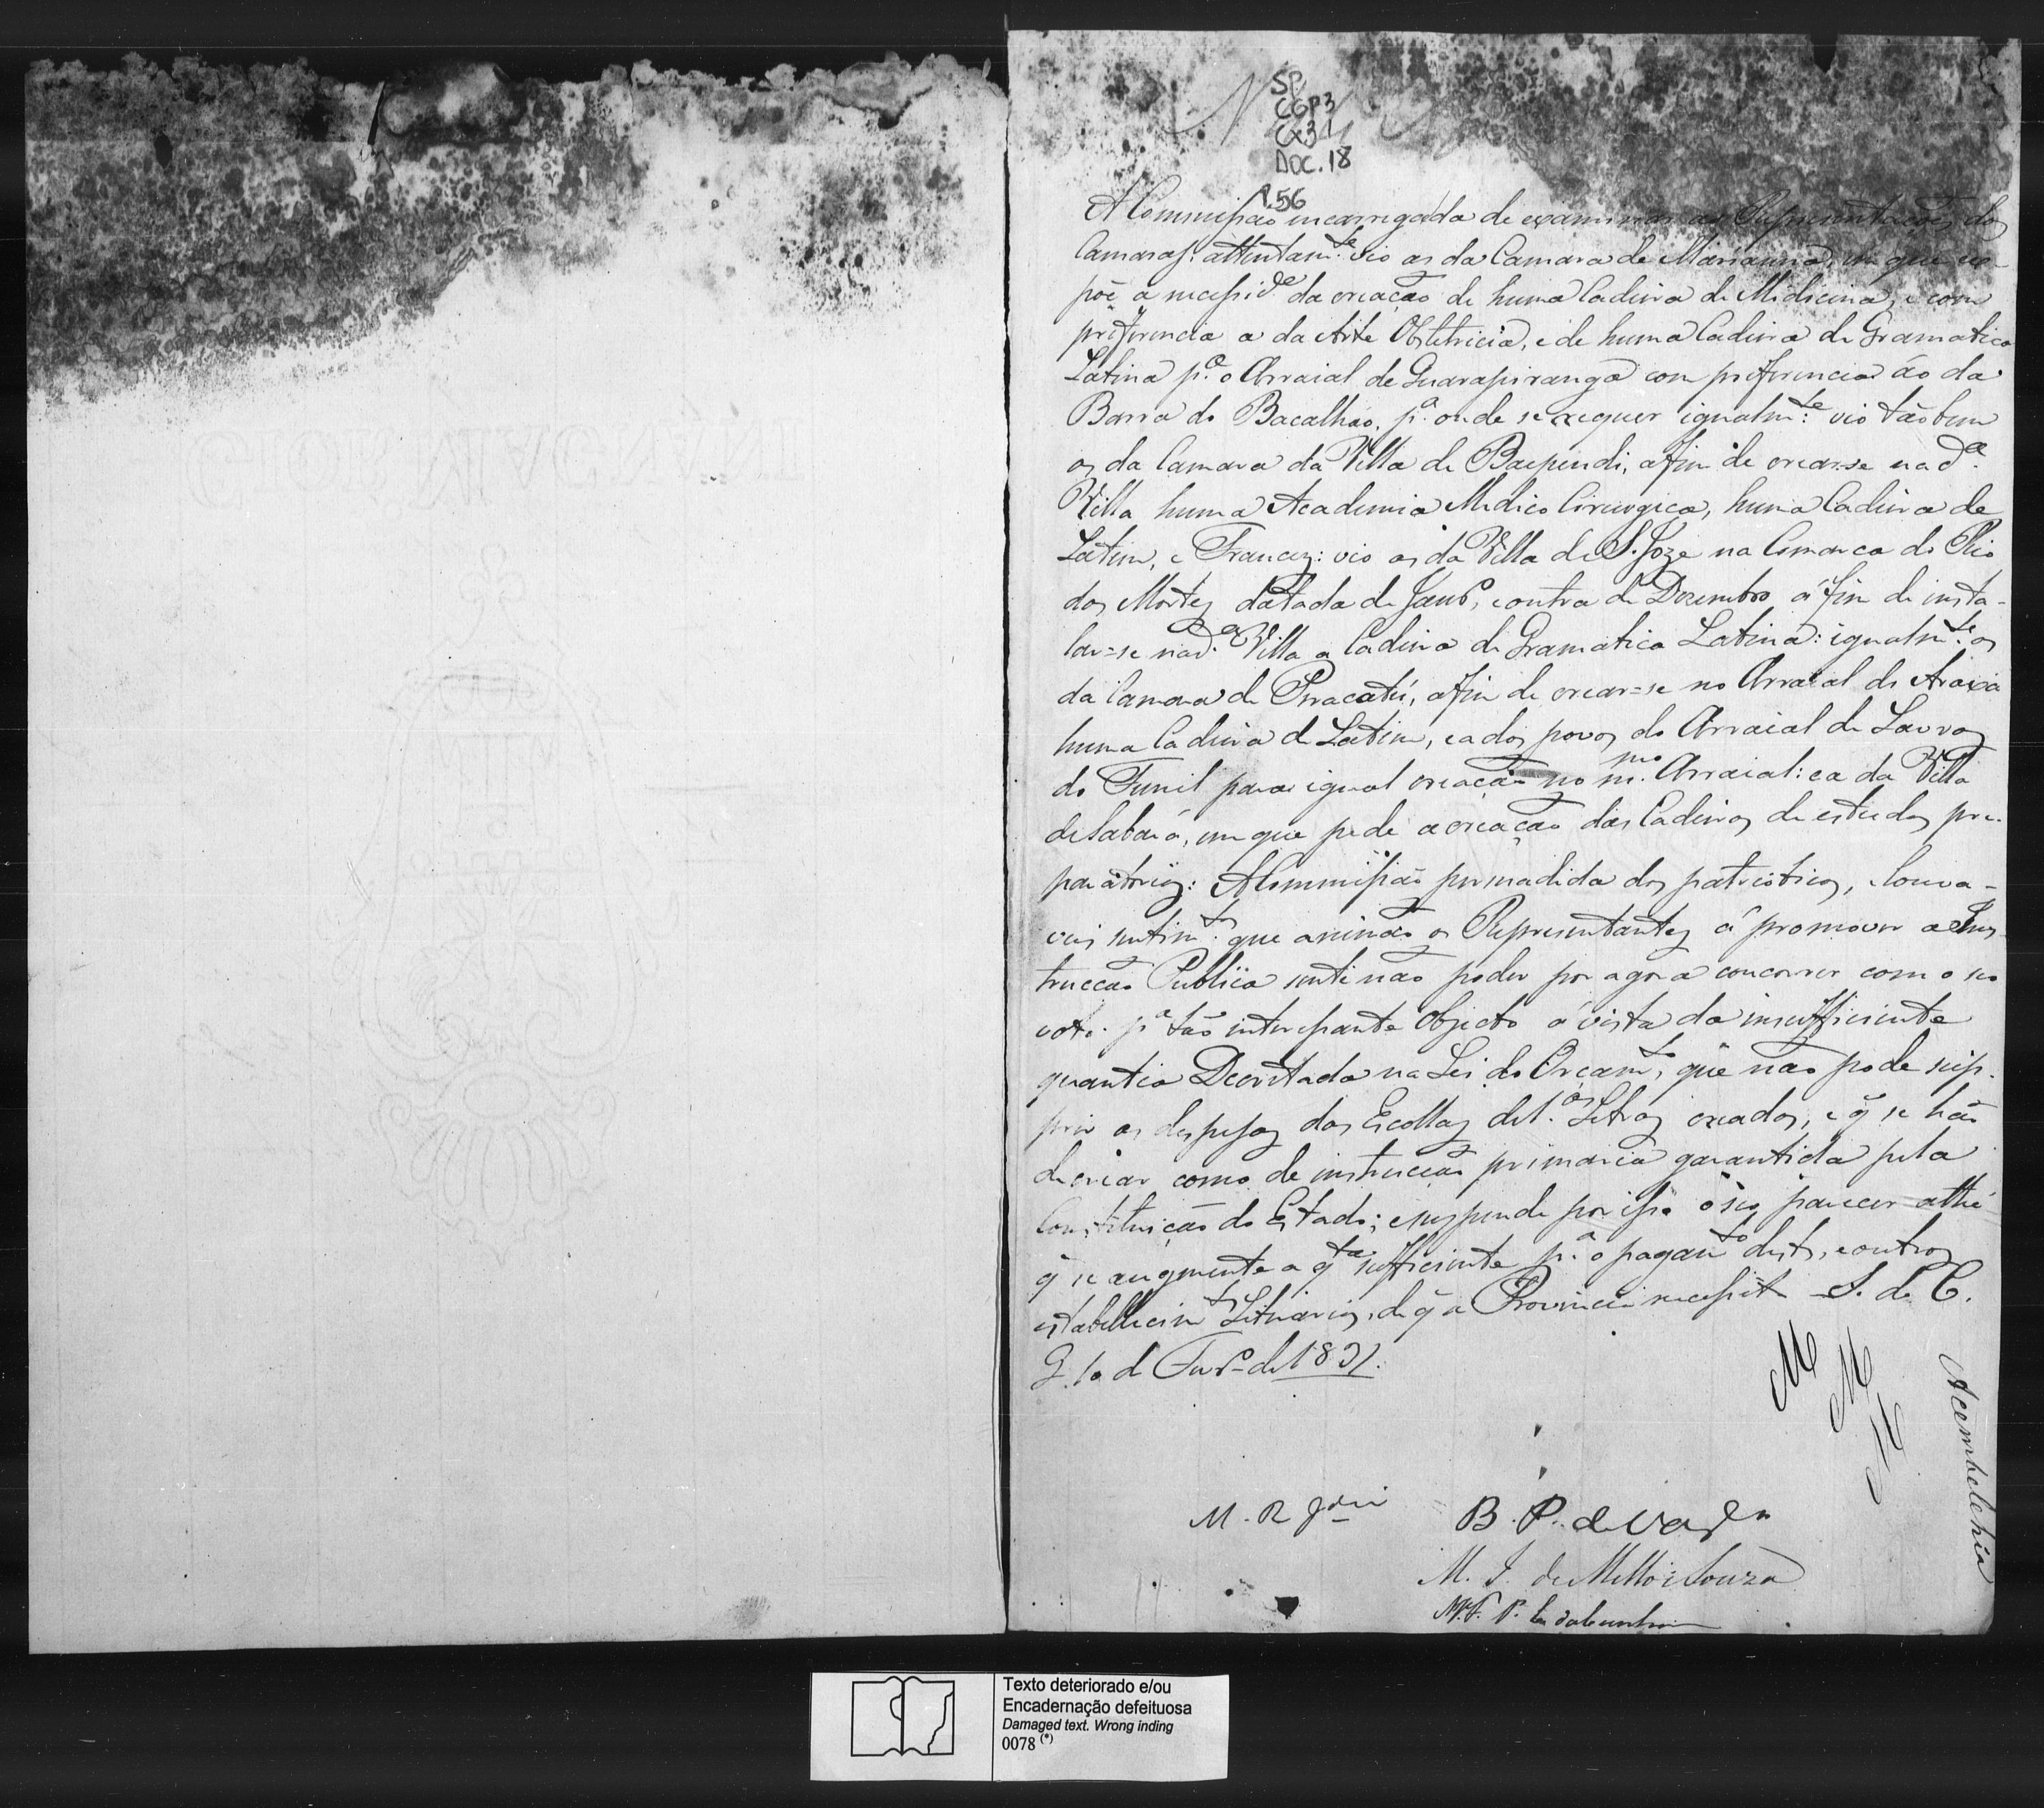 SP
CGP3
Cx31
DOC. 18
P.56
A Commissão incarregada de examinar as Representações das
Camaras attentam.te vio as da Camara de Marianna, em que ex-
põe a necessid.e da creação de huma Cadeira de Medicina, e com
preferencia a da Arte Obstetricia, e de huma Cadeira de Gramatica
Latina p.a o Arraial de Guarapiranga com preferencia áo da
Barra do Bacalhao, p.a onde se requer igualm.te: vio tãobem
as da Camara da Villa de Baependi, afim de crear-se na d.a
Villa huma Academia Medico Cirurgica, huma Cadeira de
Latim, e Francez: vio as da Villa de S. Joze na Comarca do Rio
das Mortes datada de Janr.o, e outra de Dezembro á fim de insta-
lar=se na d.a Villa a Cadeira de Gramatica Latina: igualm.te as
da Camara de Paracatú, afim de crear=se no Arraial do Araxa
huma Cadeira de Latim, e a dos povos do Arraial de Lavras
do Funil para igual creação no m.mo Arraial: e a da Villa
de Sabará, em que pede a creação das Cadeiras de estudos pre-
paratorios: A Commissão persuadida dos patrioticos, e louva-
veis sentim.tos que animão os Representantes á promover a Ins-
trucção Publica sente não poder por agora concorrer com o seo
voto p.a tão interessante Objecto á vista da insufficiente
quantia Decretada na Lei do Orçam.to, que não pode sup-
prir as despesas das Escollas de 1.as Letras creadas, e q̃ se hão
de criar como de instrucção primaria garantida pela
Constituição do Estado; e suspende por isso o seo parecer athé
q̃ se augmente a q.ta sufficiente p.a o pagam.to deste, e outros
estabellecim.tos Leterarios, de q̃ a Provincia necessita S. do C.
G. 10 de Fevr.o de 1831.
M
M
M
A Cembelchia
M. R. Jdri
B. P. de Vas.los
M. I. de Mello e Souza
M. F. P. da Cunha
Texto deteriorado e/ou
Encadernação defeituosa
Damaged text. Wrong inding
0078 (*)